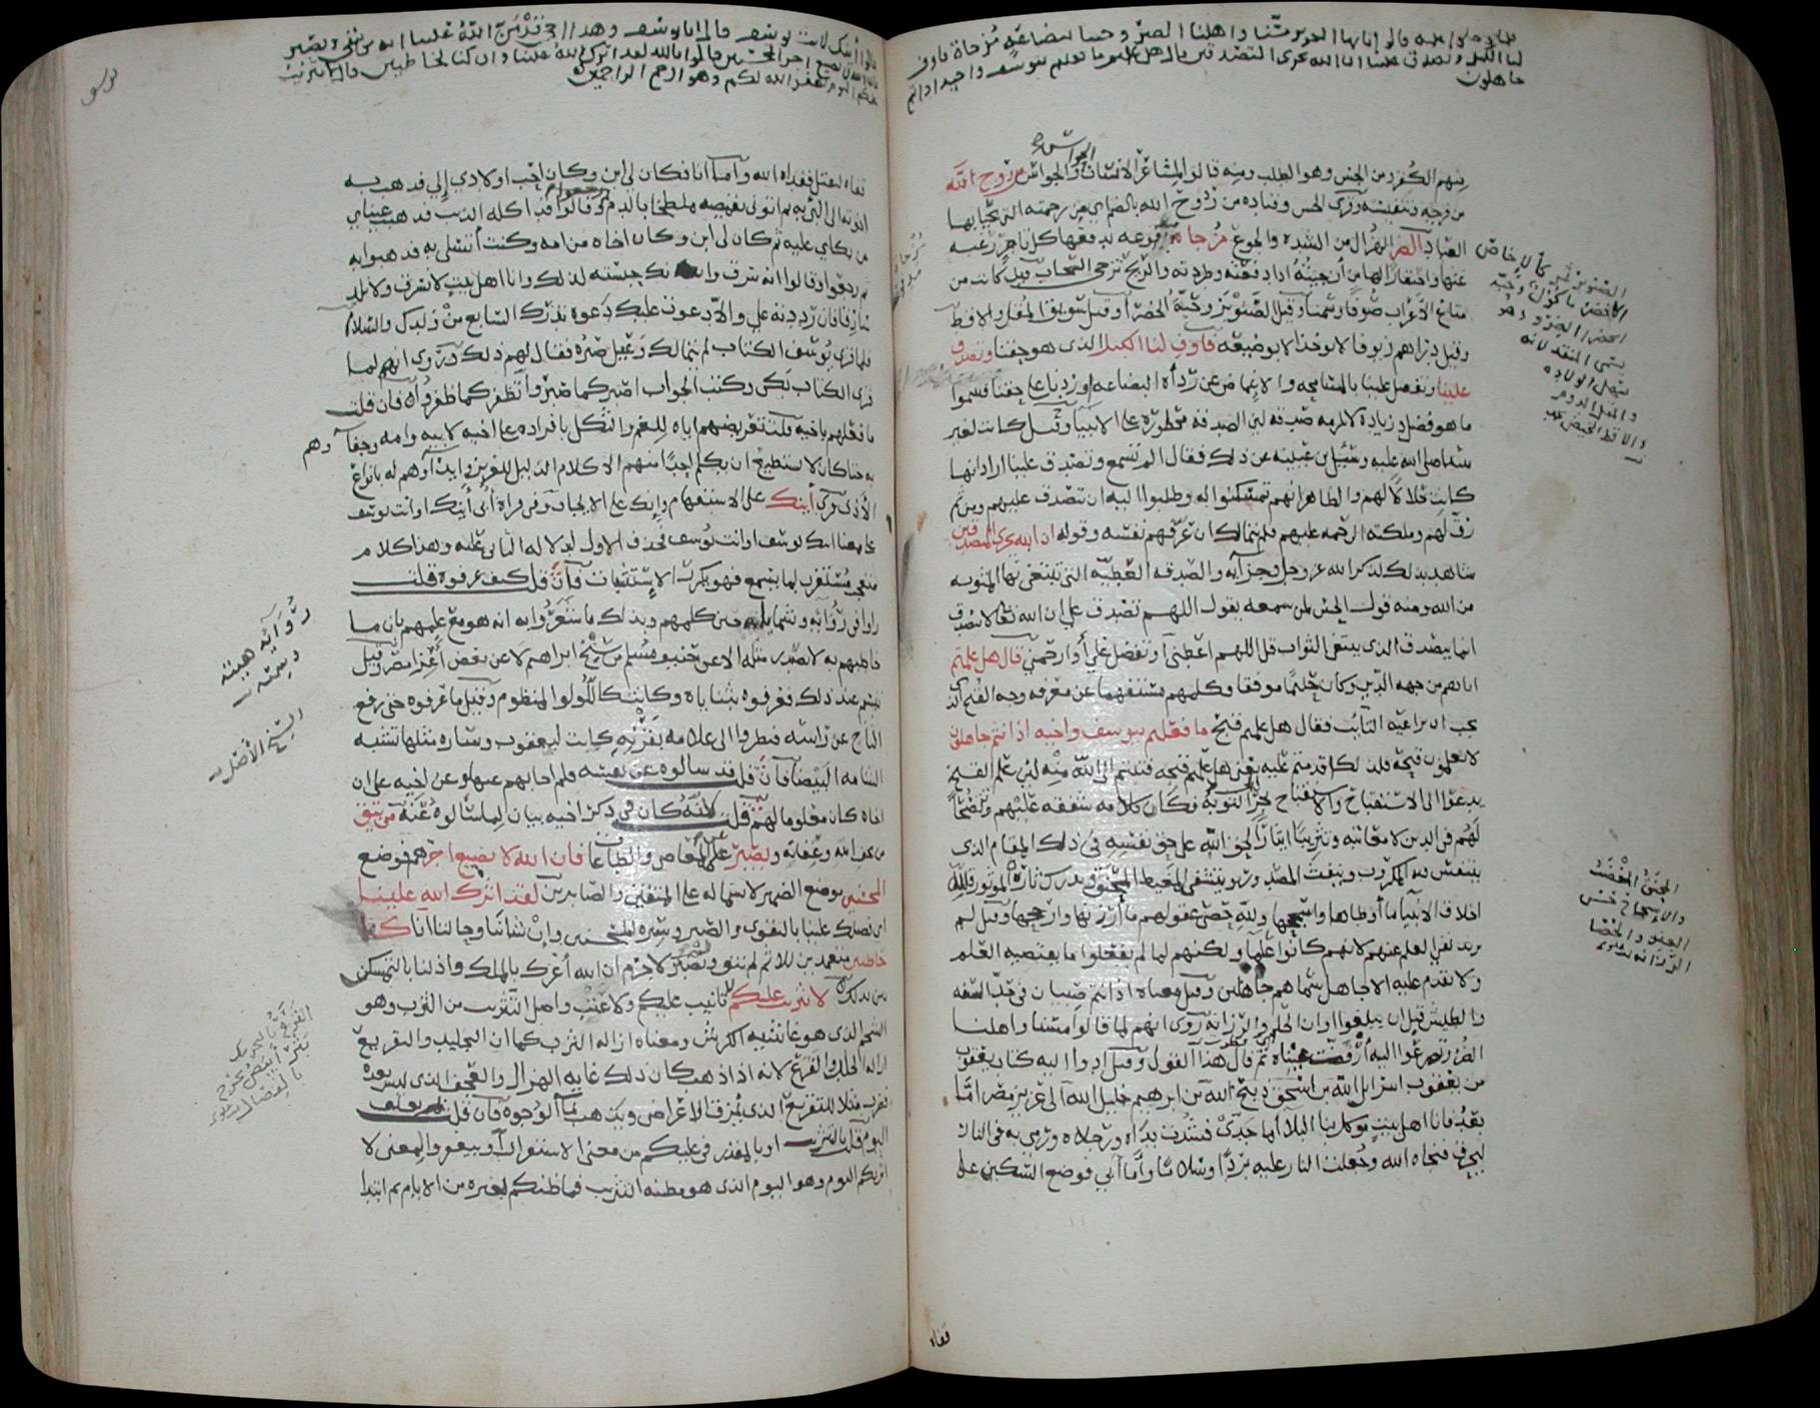 فلما دخلوا عليه قالوا يا أيها العزيز مسّنا وأهلنا الضرّ وجئنا ببضاعة مزجاة فأوف
لنا الكيل وتصدق علينا ان الله يجزي المتصدقين قال هل علمتم ما فعلتم بيوسف واخيه اذ انتم
جاهلون
الحواسّ
منهم الكفر من الحس وهو الطلب ومنه قالوا لمشاعر الانسان الحواس والجواسّ من روح الله
من فرجه وتنفيسه وقرئ الحسن وقتاده من رُوح الله بالضم اي من رحمته التي يحيا بها
العباد الضر الهزال من الشده والجوع مزجاة مدفوعه يدفعها كل تاجر رغبه
عنها واحتقارا لها من أزجيته اذا دفعته وطردته والريح تزجي السحاب قيل كانت من
متاع الاعراب صوفا وسمنا وقيل الصنوبر وحبة الخضراء وقيل سويق المقل والاقط
وقيل دراهم زيوفا لا تؤخذ الا بوضيعه فأوف لنا الكيل الذي هو حقنا وتصدق
علينا وتفضل علينا بالمسامحه والاغماض عن رداءة البضاعه او زدنا على حقنا فسموا
ما هو فضل وزياده لا تلزمه صدقه لان الصدقه محظورة على الانبيا وقيل كانت تحل لغير
نبينا صلى الله عليه وسئل ابن عيينه عن ذلك فقال الم تسمع وتصدق علينا اراد انها
كانت حلالا لهم والظاهر انهم تمسكنوا له وطلبوا اليه ان تتصدق عليهم ومن ثم
رق لهم وملكته الرحمه عليهم فلم يتمالك ان عرفهم نفسه وقوله ان الله يجزي المتصدقين
شاهد بذلك لذكر الله عز وجل وجزآئه والصدقه العطيه التي تبتغى بها المثوبه
من الله ومنه قول الحسن لمن سمعه يقول اللهم تصدق علي ان الله تعالى لا يتصدق
انما يتصدق الذي يبتغي الثواب قل اللهم اعطني أو تفضل علي أو ارحمني قال هل علمتم
اتاهم من جهه الدين وكان حليما موفقا وكلمهم مستفهما عن معرفه وجه القبح الذي
يجب ان يراعيه التائب فقال هل علمتم قبح ما فعلتم بيوسف واخيه اذ انتم جاهلون
لا تعلمون قبحه فلذلك اقدمتم عليه يعني هل علمتم قبحه فتبتم الى الله منه لان علم القبح
يدعو الى الاستقباح والاستقباح يجر الى التوبة فكان كلامه شفقه عليهم وتنصحا
لهم في الدين لا معاتبه وتثريبا ايثارا لحق الله على حق نفسه في ذلك المقام الذي
يتنفس فيه المكروب وينفث المصدور ويتشفى المغيظ المحنق ويدرك ثاره الموتور فلله
اخلاق الانبيا ما أوطاها واسجحها ولله حصى عقولهم ما أرزنها وارجحها وقيل لم
يرد نفي العلم عنهم لانهم كانوا علما ولكنهم لما لم يفعلوا ما يقتضيه العلم
ولا يقدم عليه الا جاهل سماهم جاهلين وقيل معناه اذ انتم صبيان في حد السفه
والطيش قبل ان يبلغوا اوان الحلم والرزانه روي انهم لما قالوا مسنا واهلنا
الضر وتضرعوا اليه ارفضت عيناه ثم قال هذا القول وقيل ادوا اليه كتاب يعقوب
من يعقوب اسرائيل الله بن اسحق ذبيح الله بن ابرهيم خليل الله الى عزيز مصر امّا
بعد فانا اهل بيت موكل بنا البلا اما جدي فشدت يداه ورجلاه ورمي به في النار
ليحرق فنجاه الله وجعلت النار عليه بردا وسلاما وأما أبي فوضع السكين على
الصنوبر ثمر كالإجاص
يسمى المنقد لانه
والمقل الدوم
والاقط المخيض
الحنق المغضب
والاسجاح حسن
العفو والحصا
الرزانه
قفاه
يوسف
قالوا أئنك لانت يوسف قال انا يوسف وهذا اخي قد منّ الله علينا انه من يتق ويصبر
فان الله لا يضيع اجر المحسنين قالوا تالله لقد آثرك الله علينا وان كنا لخاطئين قال لا تثريب
عليكم اليوم يغفر الله لكم وهو ارحم الراحمين
قفاه ليقتل ففداه الله وأما أنا فكان لي ابن وكان احب اولادي إلي فذهب به
اخوته الى البريه ثم اتوني بقميصه ملطخا بالدم وقالوا قد اكله الذيب فذهبت عيناي
من بكاي عليه ثم كان لي ابن وكان اخاه من امه وكنت أتسلى به فذهبوا به
ثم رجعوا وقالوا انه سرق وانك حبسته لذلك وانا اهل بيت لا نسرق ولا نلد
سارقا فان رددته علي والا دعوت عليك دعوة تدرك السابع من ولدك والسلام
فلما قرأ يوسف الكتاب لم يتمالك وعيل صبره فقال لهم ذلك وروي انه لما
قرأ الكتاب بكى وكتب الجواب اصبر كما صبروا تظفر كما ظفروا فان قلت
ما فعلهم باخيه قلت تعريضهم اياه للغم والثكل بافراده عن اخيه لابيه وامه وجفآؤهم
به حتا كان لا يستطيع ان يكلم احدا منهم الا كلام الذليل للعزيز وايذآؤهم له بانواع
الأذى قرئ أئنك على الاستفهام وإنك على الايجاب وفي قراة أُبي أئنك او انت يوسف
على معنا ائنك يوسف او انت يوسف فحذف الاول لدلاله الثاني عليه وهذا كلام
متعجب مستغرب لما يسمع فهو يكرر الاستثبات فان قلت كيف عرفوه قلت
رأوا في رُوَآئه وشمايله حين كلمهم بذلك ما شعروا به انه هو مع علمهم بان ما
خاطبهم به لا يصدر مثله الا عن حنيف مسلم من سنخ ابراهيم لا عن بعض أعزاء مصر وقيل
تبسم عند ذلك فعرفوه بثناياه وكانت كاللؤلؤ المنظوم وقيل ما عرفوه حتى رفع
التاج عن رأسه فنظروا الى علامه بقرنه كانت ليعقوب وساره مثلها تشبه
الشامه البيضا فان قلت قد سالوه عن نفسه فلم اجابهم عنها وعن اخيه على ان
اخاه كان معلوما لهم قلت لأنه كان في ذكر اخيه بيان لما سألوه عنه من يتق
من يخف الله وعقابه ويصبر على المعاصي وعلى الطاعات فان الله لا يضيع اجرهم فوضع
المحسنين موضع الضمير لاشتماله على المتقين والصابرين لقد اثرك الله علينا
اي فضلك علينا بالتقوى والصبر وسيره المحسنين وإن شاننا وحالنا انا كنا
خاطئين متعمدين للاثم لم نتق ولم نصبر لا جرم ان الله أعزك بالملك واذلنا بالتمسكن
بين يديك لا تثريب عليكم لا تانيب عليكم ولا عتب واصل التثريب من الثرب وهو
الشحم الذي هو غاشيه الكرش ومعناه ازاله الثرب كما ان التجليد والتقريع
ازاله الجلد والقرع لانه اذا ذهب كان ذلك غايه الهزال والعجف الذي ليس بعده
فضرب مثلا للتقريع الذي يمزق الاعراض ويذهب بمآ الوجوه فان قلت بم تعلق
اليوم قلت بالتثريب او بالمقدر في عليكم من معنى الاستقرار او بيغفر والمعنى لا
اثربكم اليوم وهو اليوم الذي هو مظنه التثريب فما ظنكم بغيره من الايام ثم ابتدا
رُوَآئه هيئته
السنخ الأصل
القرع بالتحريك
بثر ابيض يخرج
بالفصال